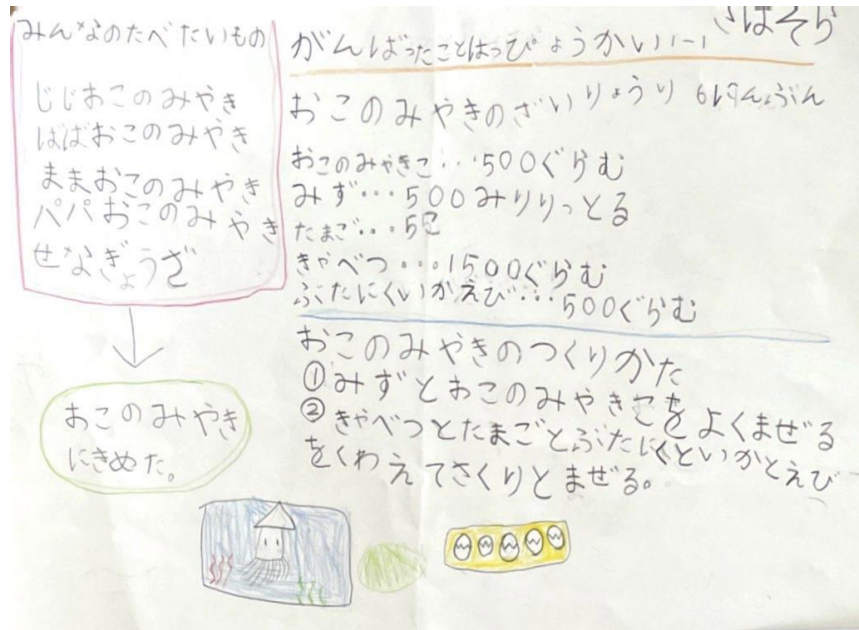 みんなのたべたいもの
じじおこのみやき
ばばおこのみやき
ままおこのみやき
パパおこのみやき
せなぎょうざ
おこのみやき
にきめた。
がんばったことはっぴょうかい
おこのみやきのざいりょうり 6にんぶん
おこのみやきこ・・・500ぐらむ
みず・・・500みりりっとる
たまご・・・5こ
きゃべつ・・・1500ぐらむ
ぶたにくいかえび・・・500ぐらむ
おこのみやきのつくりかた
①みずとおこのみやきこをよくまぜる
②きゃべつとたまごとぶたにくといかとえび
をくわえてさくりとまぜる。